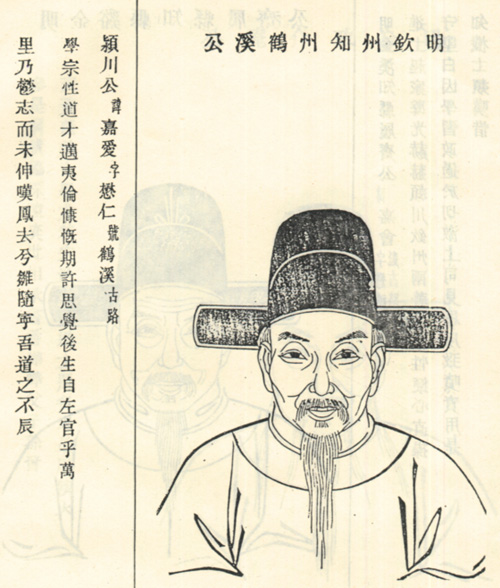 明欽州知州鶴溪公
潁川公諱嘉愛字懋仁號鶴溪古路
學宗性道才邁夷倫慷慨期許思覺後生自左官乎萬
里乃鬱志而未伸嘆鳳去兮雛隨寧吾道之不辰